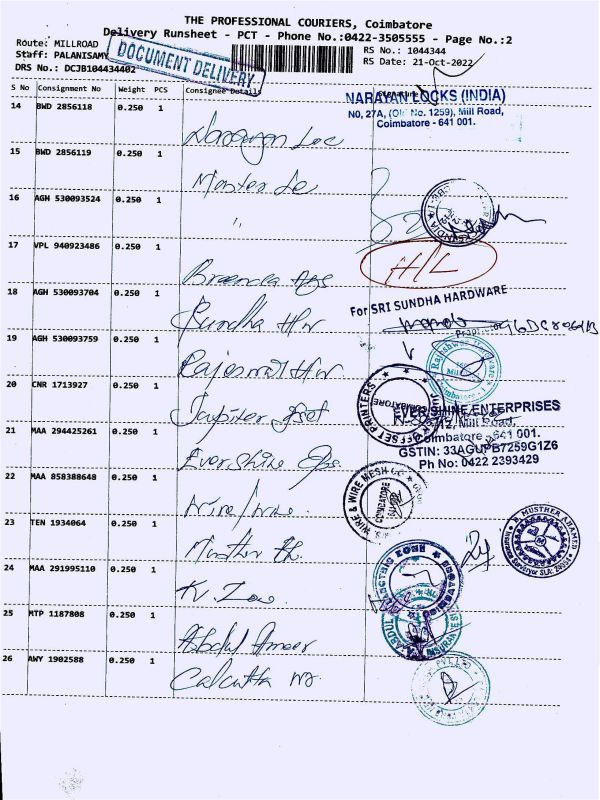 THE PROFESSIONAL COURIERS, Coimbatore
Delivery Runsheet - PCT - Phone No.:0422-3505555 - Page No.:2
Route: MILLROAD
RS No.: 1044344
Staff: PALANISAMY
RS Date: 21-Oct-2022
DRS No.: DCJB104434402
DOCUMENT DELIVERY
S No Consignment No Weight PCS Consignee Details
14 BWD 2856118 0.250 1
NARAYAN LOCKS (INDIA)
NO, 27A, (Old No. 1259), Mill Road,
Coimbatore - 641 001.
Narayan Loc
15 BWD 2856119 0.250 1
Master Lo
16 AGH 530093524 0.250 1
"
17 VPL 940923486 0.250 1
H/L
18 AGH 530093704 0.250 1
For SRI SUNDHA HARDWARE
Sundha Hw
19 AGH 530093759 0.250 1
Rajeswari Hw
20 CNR 1713927 0.250 1
Jupiter offset
OFFSET PRINTERS
COIMBATORE
EVER SHINE ENTERPRISES
Mill Road,
Coimbatore - 641 001.
GSTIN: 33AGUPB7259G1Z6
Ph No: 0422 2393429
21 MAA 294425261 0.250 1
Ever Shine
22 MAA 858388648 0.250 1
WIRE & WIRE MESH
COIMBATORE
Wire/wire
23 TEN 1934064 0.250 1
MUSTHER AHAMED
24 MAA 291995110 0.250 1
K. Zoo
25 MTP 1187808 0.250 1
Abdul Ameer
26 AWY 1902588 0.250 1
Calcutta